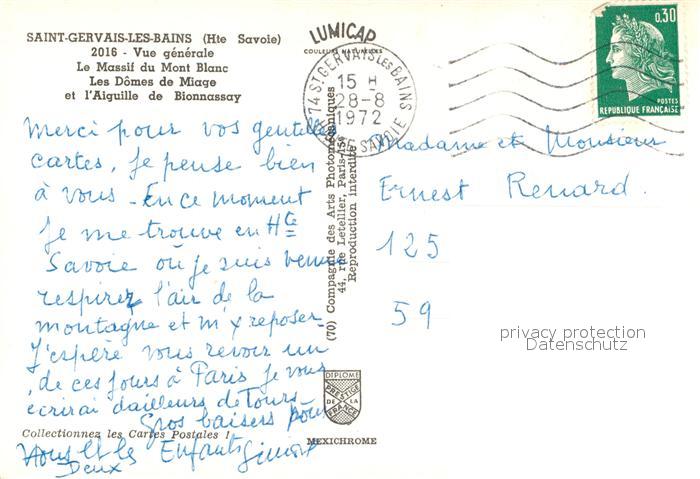 SAINT-GERVAIS-LES-BAINS (Hte Savoie)
2016 - Vue générale
Le Massif du Mont Blanc
Les Dômes de Miage
et l'Aiguille de Bionnassay
Merci pour vos gentilles
cartes, je pense bien
à vous. En ce moment
je me trouve en Hte
Savoie où je suis venue
respirer l'air de la
montagne et m'y reposer.
J'espère vous revoir un
de ces jours à Paris je vous
écrirai d'ailleurs de Tours.
Gros baisers pour
Vous
Deux et les Enfants
Collectionnez les Cartes Postales !
LUMICAP
COULEURS NATURELLES
74 ST GERVAIS LES BAINS
15 H
28-8
1972
HTE SAVOIE
(70) Compagnie des Arts Photomécaniques
44, rue Letellier, Paris-15e
Reproduction interdite
DIPLOME
PRESTIGE
DE LA
FRANCE
MEXICHROME
0,30
POSTES
REPUBLIQUE FRANÇAISE
Madame et Monsieur
Ernest Renard.
125
59
privacy protection
Datenschutz